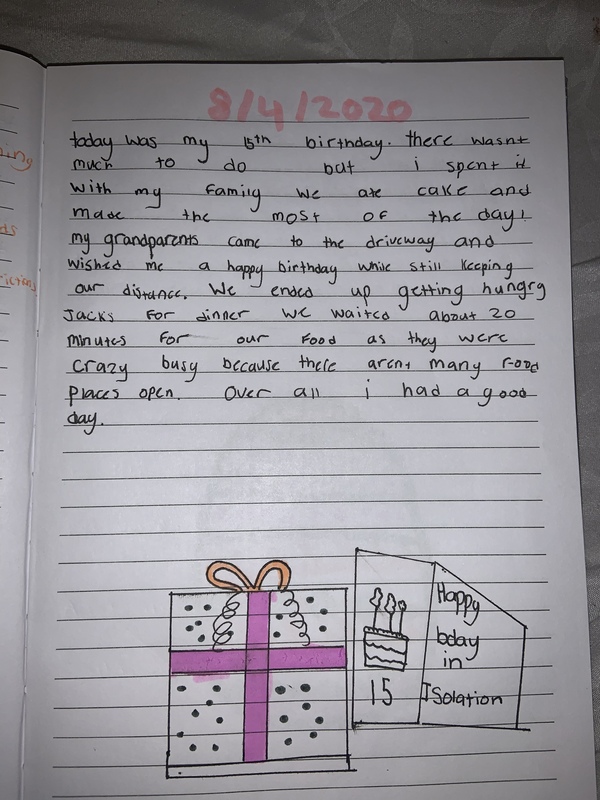 ning
ds
8/4/2020
today was my 15th birthday. there wasnt
much to do but i spent it
with my family we ate cake and
made the most of the day!
my grandparents came to the driveway and
wished me a happy birthday while still keeping
our distance. We ended up getting hungry
Jacks for dinner we waited about 20
minutes for our food as they were
crazy busy because there arent many food
places open. Over all i had a good
day.
Happy
bday
in
ISolation
15